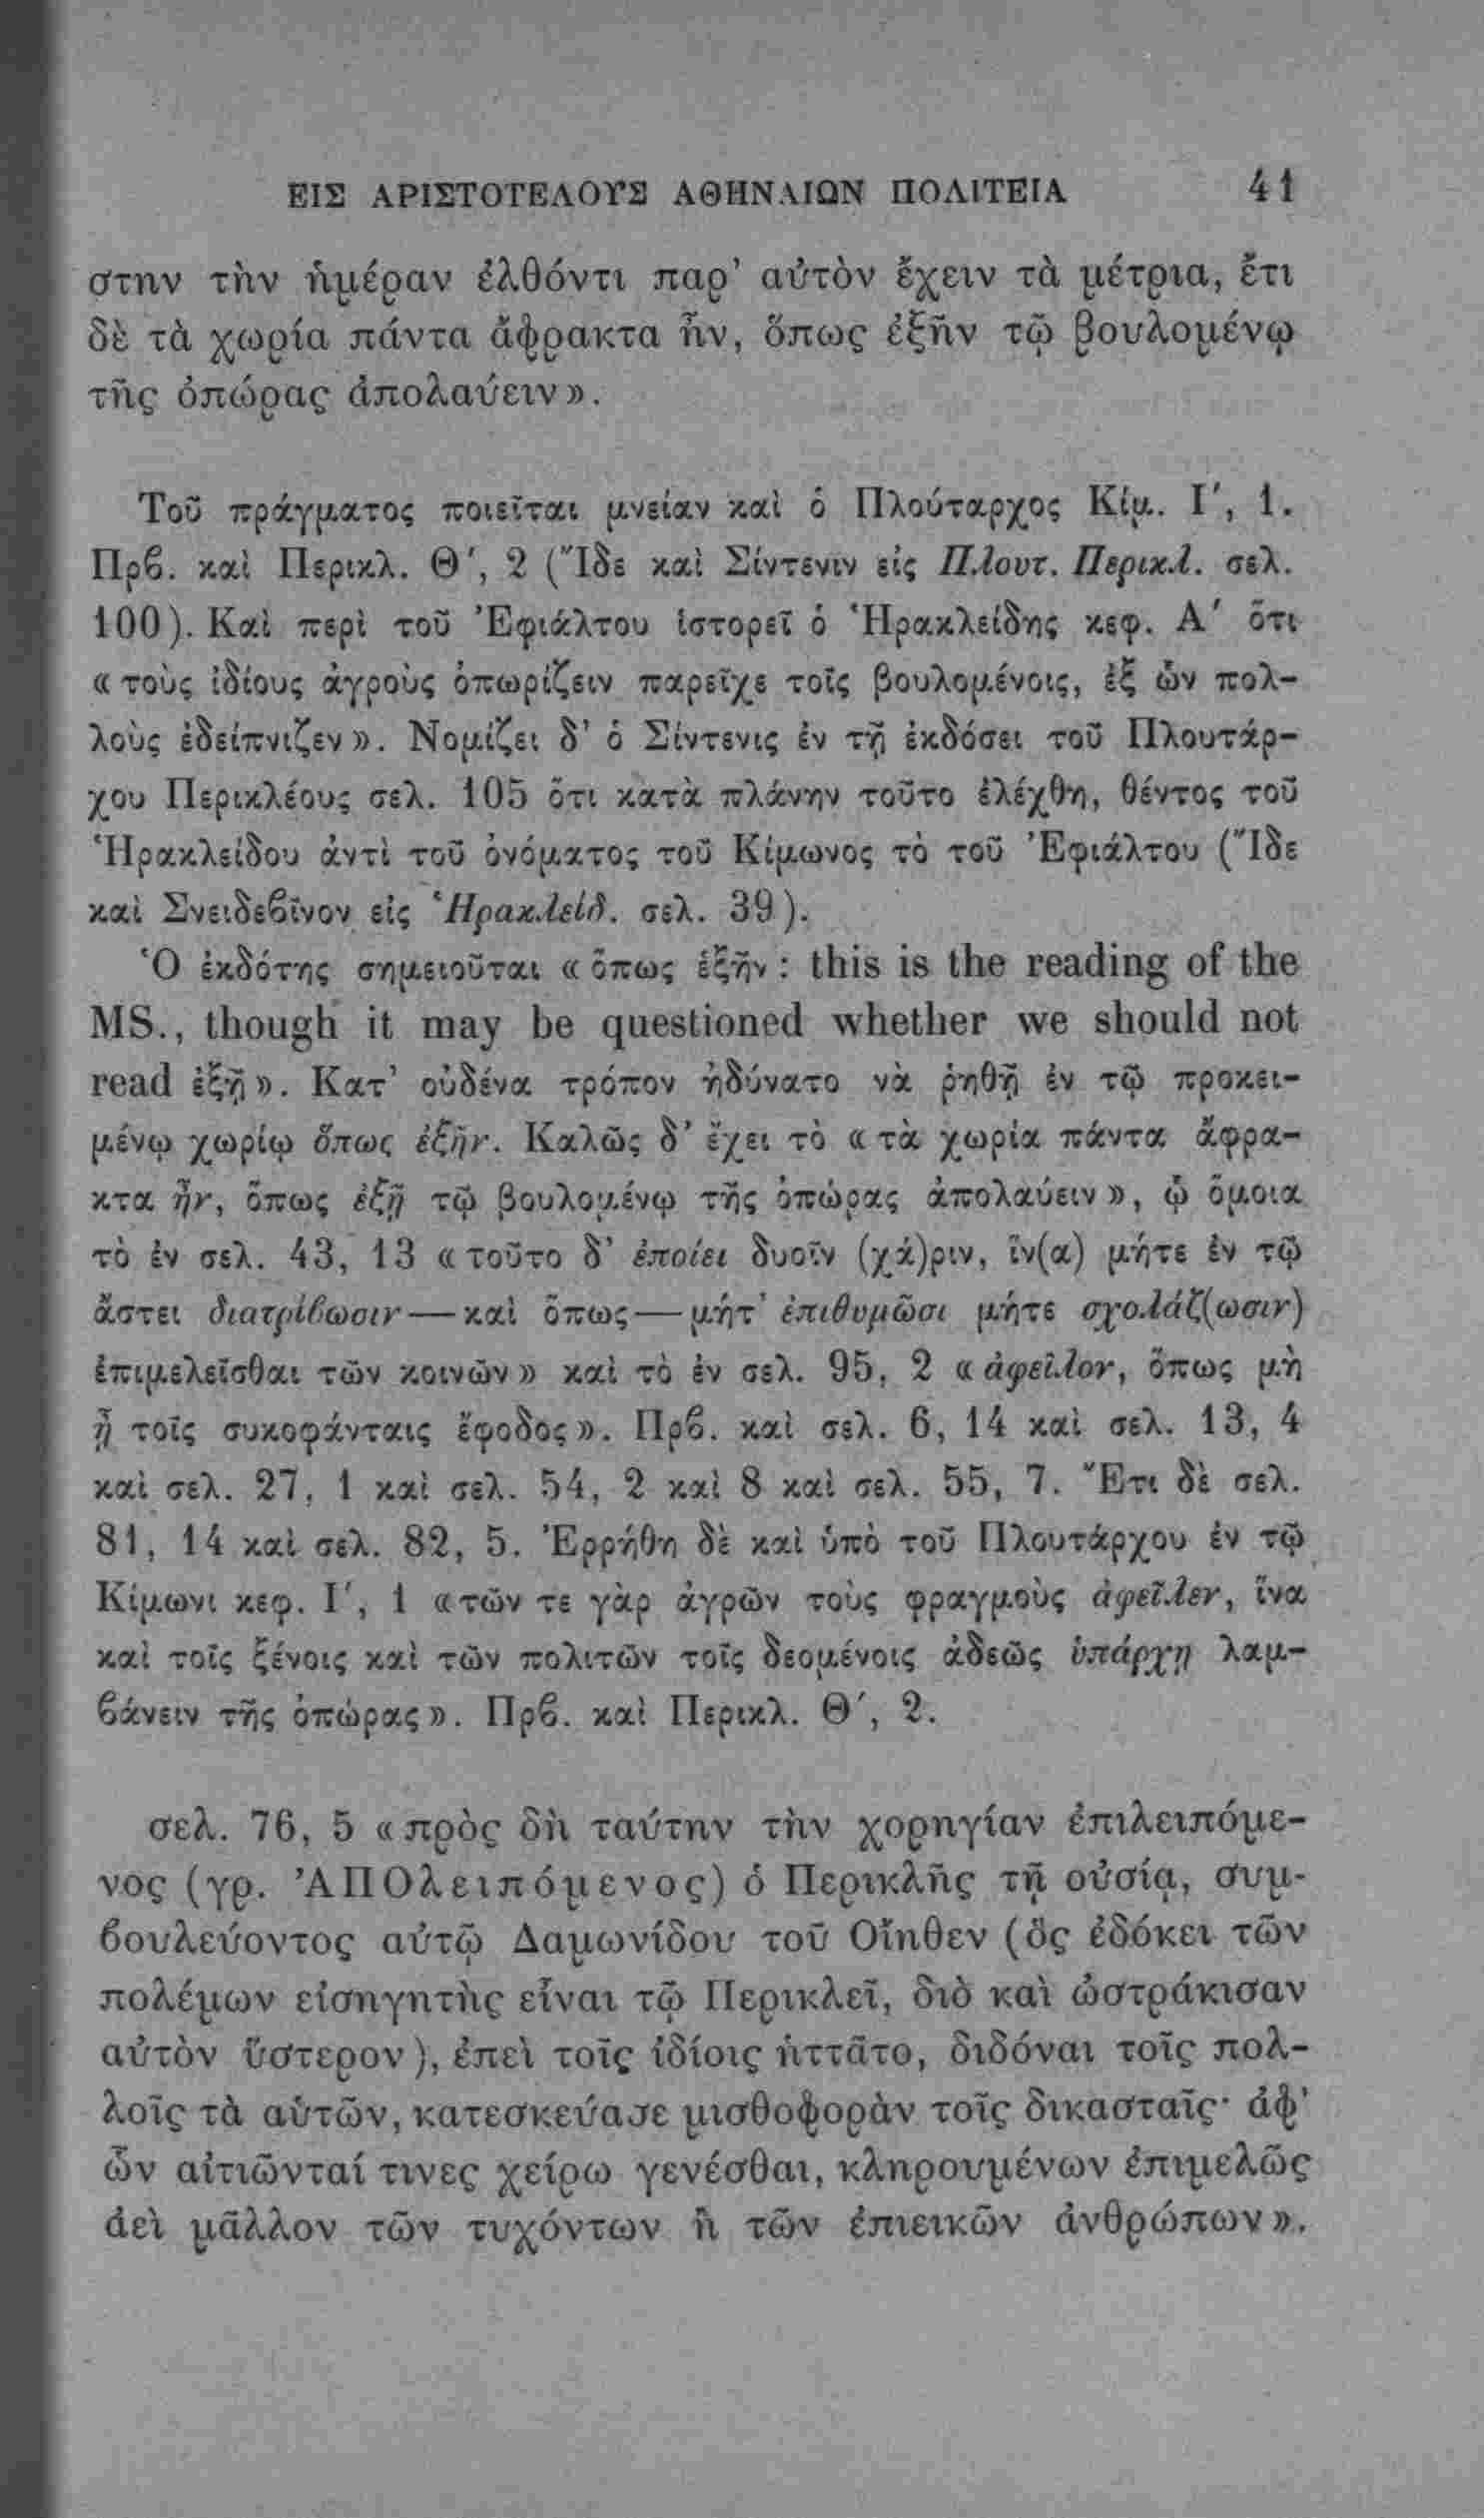 ΕΙΣ ΑΡΙΣΤΟΤΕΛΟΥΣ ΑΘΗΝΑΙΩΝ ΠΟΛΙΤΕΙΑ 41
στην τὴν ἡμέραν ἐλθόντι παρ' αὐτὸν ἔχειν τὰ μέτρια, ἔτι
δὲ τὰ χωρία πάντα ἄφρακτα ἦν, ὅπως ἐξῆν τῷ βουλομένῳ
τῆς ὀπώρας ἀπολαύειν».
Τοῦ πράγματος ποιεῖται μνείαν καὶ ὁ Πλούταρχος Κίμ. Ι', 1.
Πρϐ. καὶ Περικλ. Θ', 2 (Ἴδε καὶ Σίντενιν εἰς Πλουτ. Περικλ. σελ.
100). Καὶ περὶ τοῦ Ἐφιάλτου ἱστορεῖ ὁ Ἡρακλείδης κεφ. Α' ὅτι
«τοὺς ἰδίους ἀγροὺς ὀπωρίζειν παρεῖχε τοῖς βουλομένοις, ἐξ ὧν πολ-
λοὺς ἐδείπνιζεν». Νομίζει δ' ὁ Σίντενις ἐν τῇ ἐκδόσει τοῦ Πλουτάρ-
χου Περικλέους σελ. 105 ὅτι κατὰ πλάνην τοῦτο ἐλέχθη, θέντος τοῦ
Ἡρακλείδου ἀντὶ τοῦ ὀνόματος τοῦ Κίμωνος τὸ τοῦ Ἐφιάλτου (Ἴδε
καὶ Σνειδεϐῖνον εἰς Ἡρακλείδ. σελ. 39).
Ὁ ἐκδότης σημειοῦται «ὅπως ἐξῆν: this is the reading of the
MS., though it may be questioned whether we should not
read ἐξῇ». Κατ' οὐδένα τρόπον ἠδύνατο νὰ ῥηθῇ ἐν τῷ προκει-
μένῳ χωρίῳ ὅπως ἐξῆν. Καλῶς δ' ἔχει τὸ «τὰ χωρία πάντα ἄφρα-
κτα ἦν, ὅπως ἐξῇ τῷ βουλομένῳ τῆς ὀπώρας ἀπολαύειν», ᾧ ὅμοια
τὸ ἐν σελ. 43, 13 «τοῦτο δ' ἐποίει δυοῖν (χά)ριν, ἵν(α) μήτε ἐν τῷ
ἄστει διατρίϐωσιν—καὶ ὅπως—μήτ' ἐπιθυμῶσι μήτε σχολάζ(ωσιν)
ἐπιμελεῖσθαι τῶν κοινῶν» καὶ τὸ ἐν σελ. 95, 2 «ἀφεῖλον, ὅπως μὴ
ᾖ τοῖς συκοφάνταις ἔφοδος». Πρϐ. καὶ σελ. 6, 14 καὶ σελ. 13, 4
καὶ σελ. 27, 1 καὶ σελ. 54, 2 καὶ 8 καὶ σελ. 55, 7. Ἔτι δὲ σελ.
81, 14 καὶ σελ. 82, 5. Ἐρρήθη δὲ καὶ ὑπὸ τοῦ Πλουτάρχου ἐν τῷ
Κίμωνι κεφ. Ι', 1 «τῶν τε γὰρ ἀγρῶν τοὺς φραγμοὺς ἀφεῖλεν, ἵνα
καὶ τοῖς ξένοις καὶ τῶν πολιτῶν τοῖς δεομένοις ἀδεῶς ὑπάρχῃ λαμ-
ϐάνειν τῆς ὀπώρας». Πρϐ. καὶ Περικλ. Θ', 2.
σελ. 76, 5 «πρὸς δὴ ταύτην τὴν χορηγίαν ἐπιλειπόμε-
νος (γρ. ἈΠΟλειπόμενος) ὁ Περικλῆς τῇ οὐσίᾳ, συμ-
ϐουλεύοντος αὐτῷ Δαμωνίδου τοῦ Οἴηθεν (ὃς ἐδόκει τῶν
πολέμων εἰσηγητὴς εἶναι τῷ Περικλεῖ, διὸ καὶ ὠστράκισαν
αὐτὸν ὕστερον), ἐπεὶ τοῖς ἰδίοις ἡττᾶτο, διδόναι τοῖς πολ-
λοῖς τὰ αὑτῶν, κατεσκεύασε μισθοφορὰν τοῖς δικασταῖς· ἀφ'
ὧν αἰτιῶνταί τινες χείρω γενέσθαι, κληρουμένων ἐπιμελῶς
ἀεὶ μᾶλλον τῶν τυχόντων ἢ τῶν ἐπιεικῶν ἀνθρώπων».